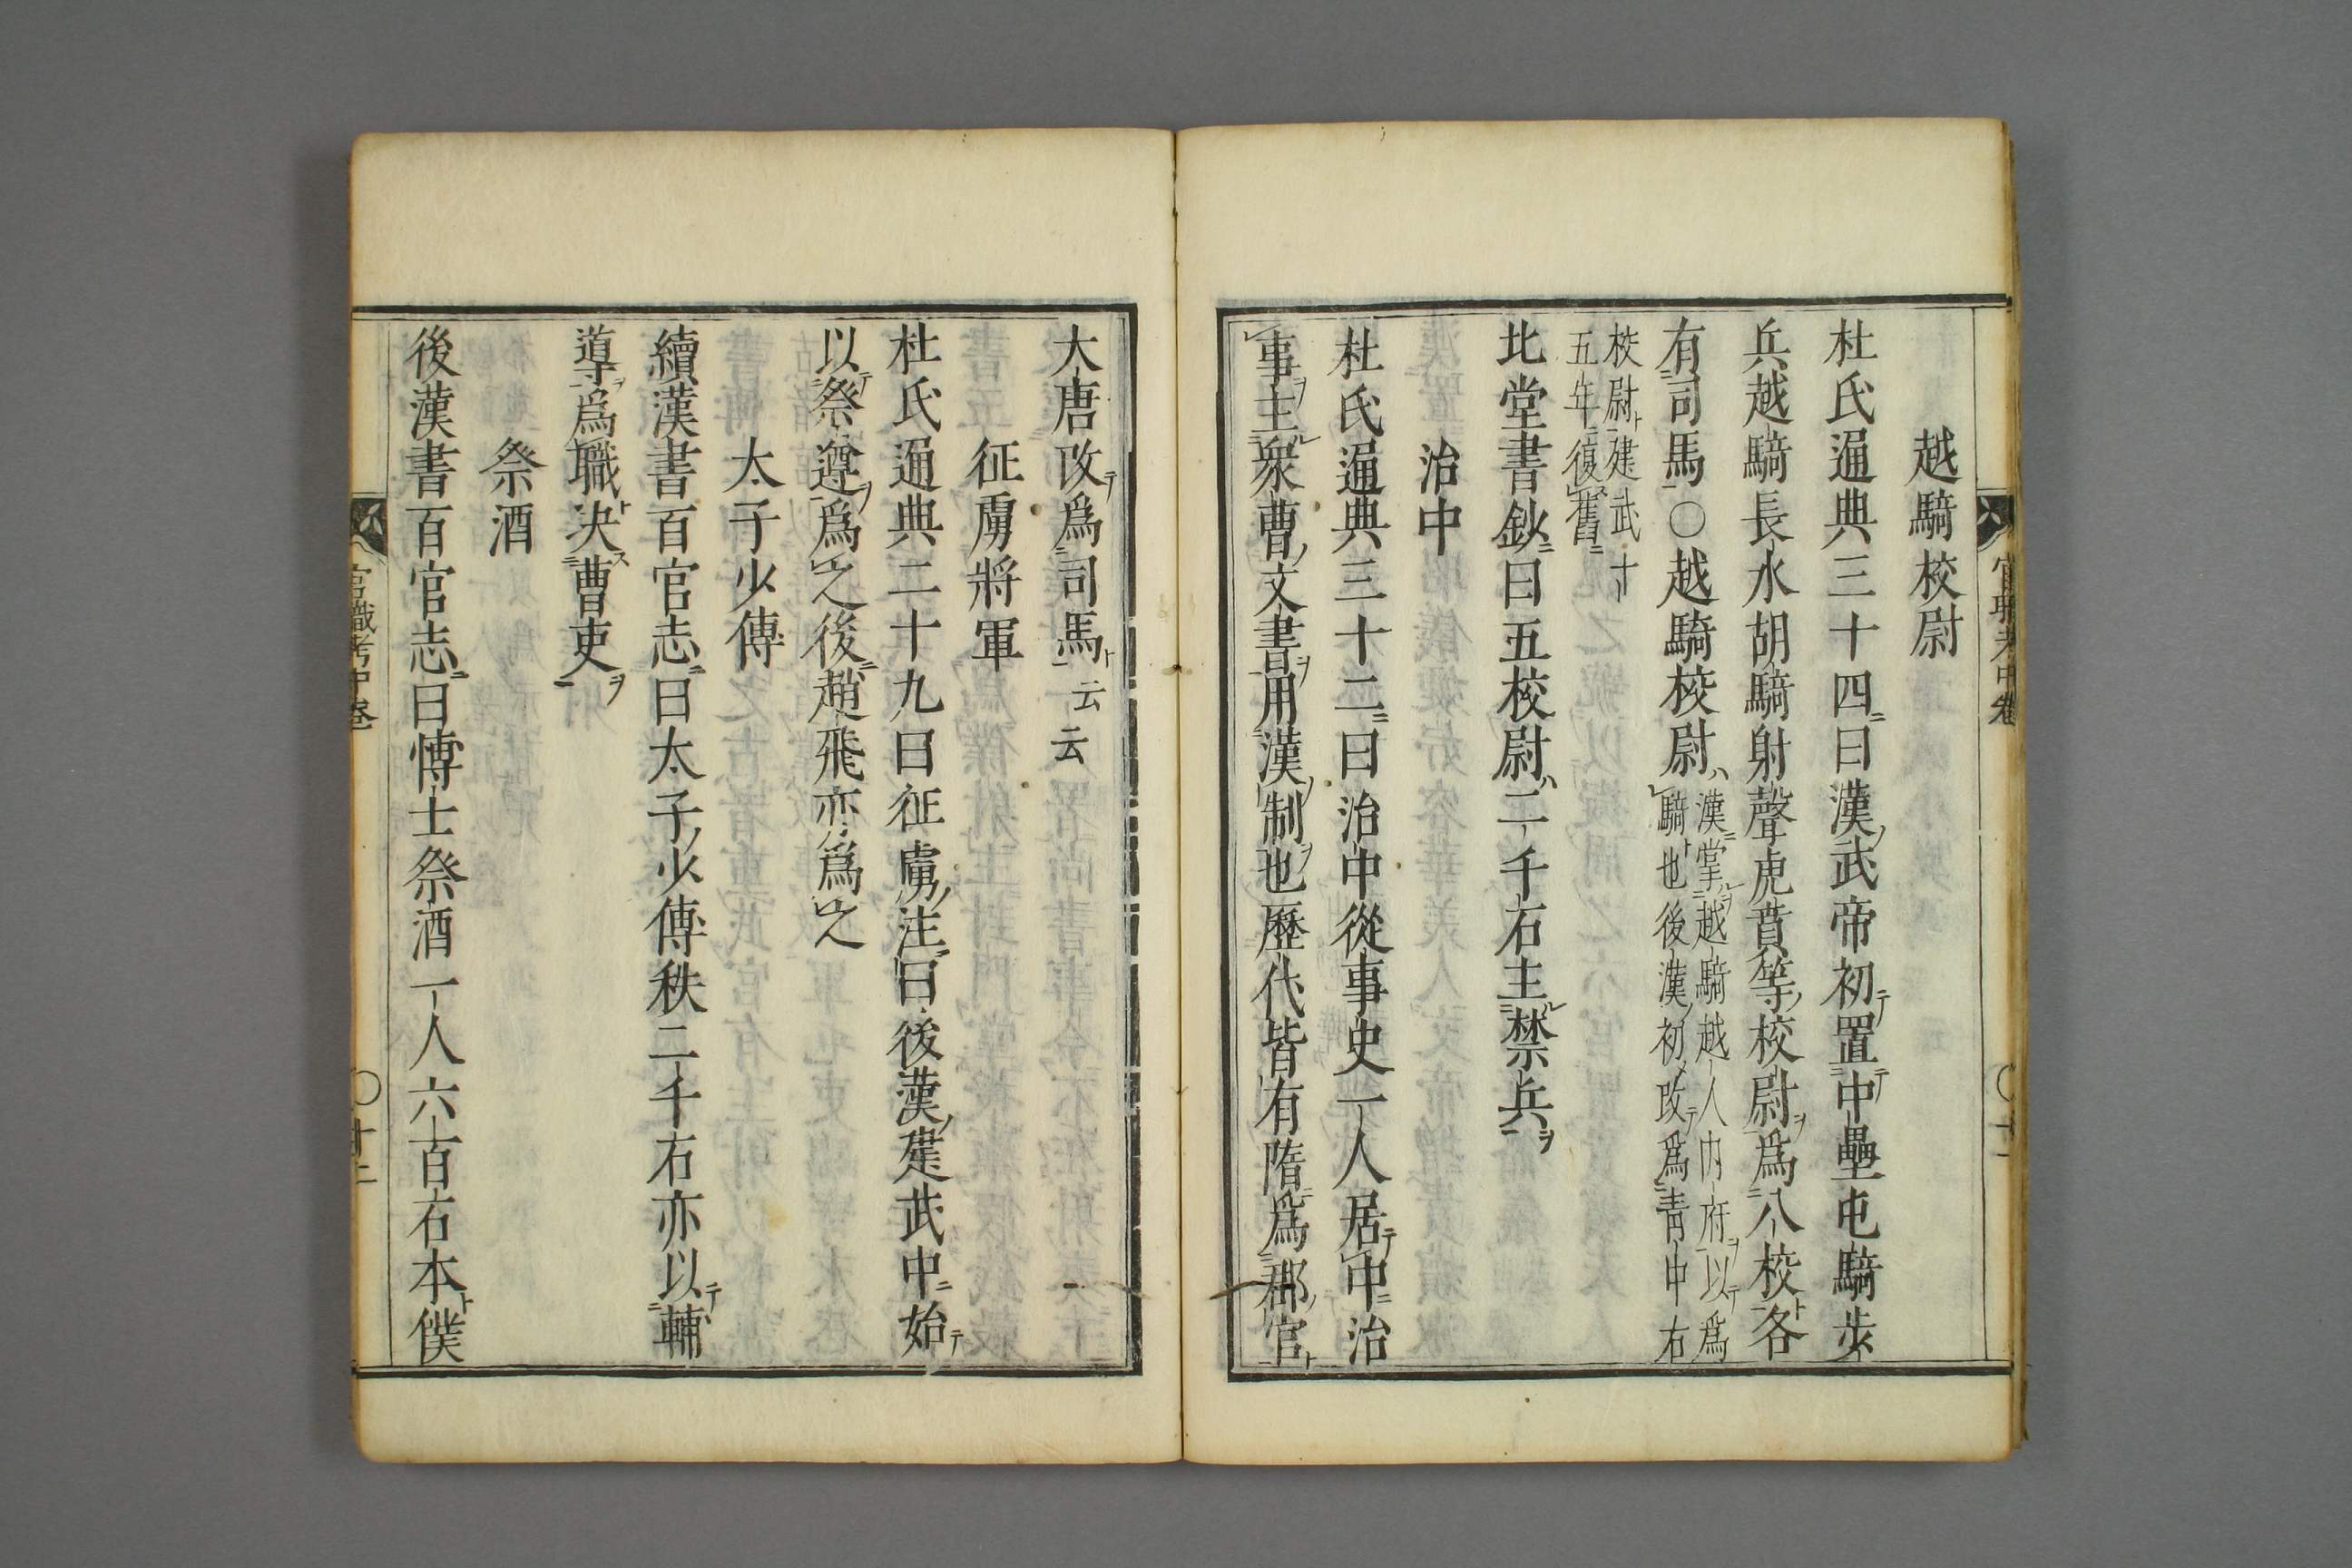 越騎校尉
杜氏通典三十四曰漢武帝初置中壘屯騎步
兵越騎長水胡騎射聲虎賁等校尉爲八校各
有司馬○越騎校尉
漢掌越騎越人内府以爲
騎也後漢初改爲青巾右
校尉建武十
五年復舊
北堂書鈔曰五校尉二千石主禁兵
治中
杜氏通典三十二曰治中從事史一人居中治
事主衆曹文書用漢制也歷代皆有隋爲郡官
大唐改爲司馬云云
征虜將軍
杜氏通典二十九曰征虜注曰後漢建武中始
以祭遵爲之後趙飛亦爲之
太子少傅
續漢書百官志曰太子少傅秩二千石亦以輔
導爲職決曹吏
祭酒
後漢書百官志曰博士祭酒一人六百石本僕
官職考中卷
○十二